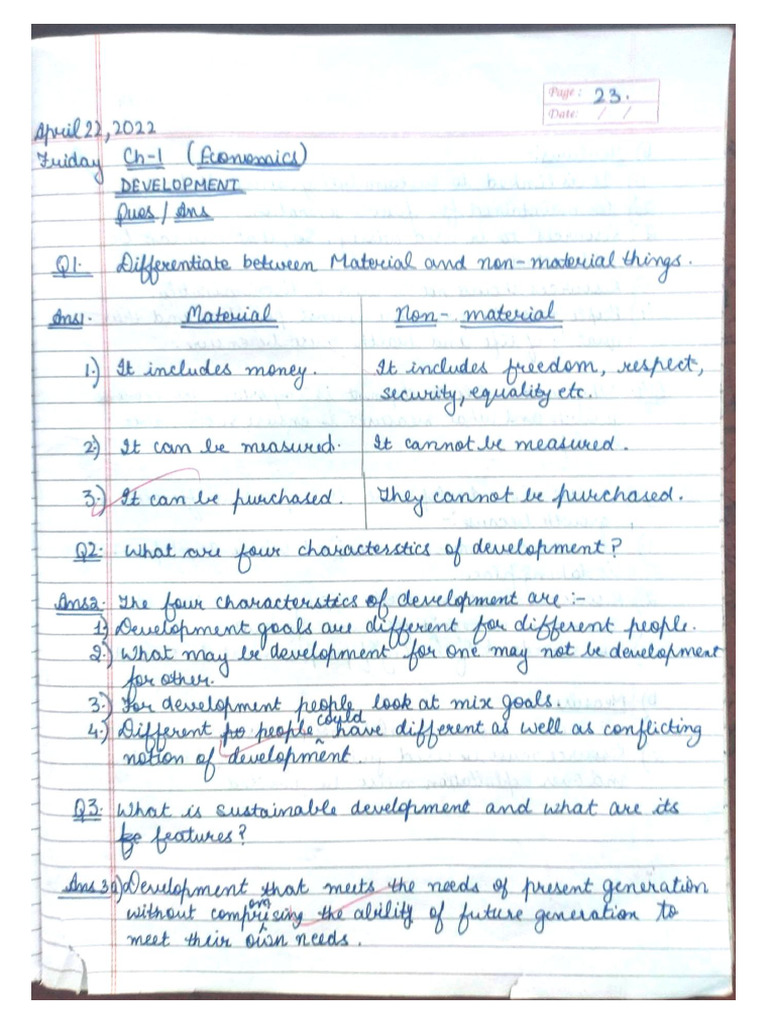 Page: 23.
Date: / /
April 22, 2022
Friday Ch-1 (Economics)
DEVELOPMENT
Ques / Ans
Q1. Differentiate between Material and non-material things.
Ans1. Material Non-material
1.) It includes money. It includes freedom, respect,
security, equality etc.
2.) It can be measured. It cannot be measured.
3.) It can be purchased. They cannot be purchased.
Q2. What are four characterstics of development?
Ans2. The four characterstics of development are :-
1.) Development goals are different for different people.
2.) What may be development for one may not be development
for other.
3.) For development people look at mix goals.
4.) Different people could have different as well as conflicting
notion of development.
Q3. What is sustainable development and what are its
features?
Ans 3a) Development that meets the needs of present generation
without compromising the ability of future generation to
meet their own needs.